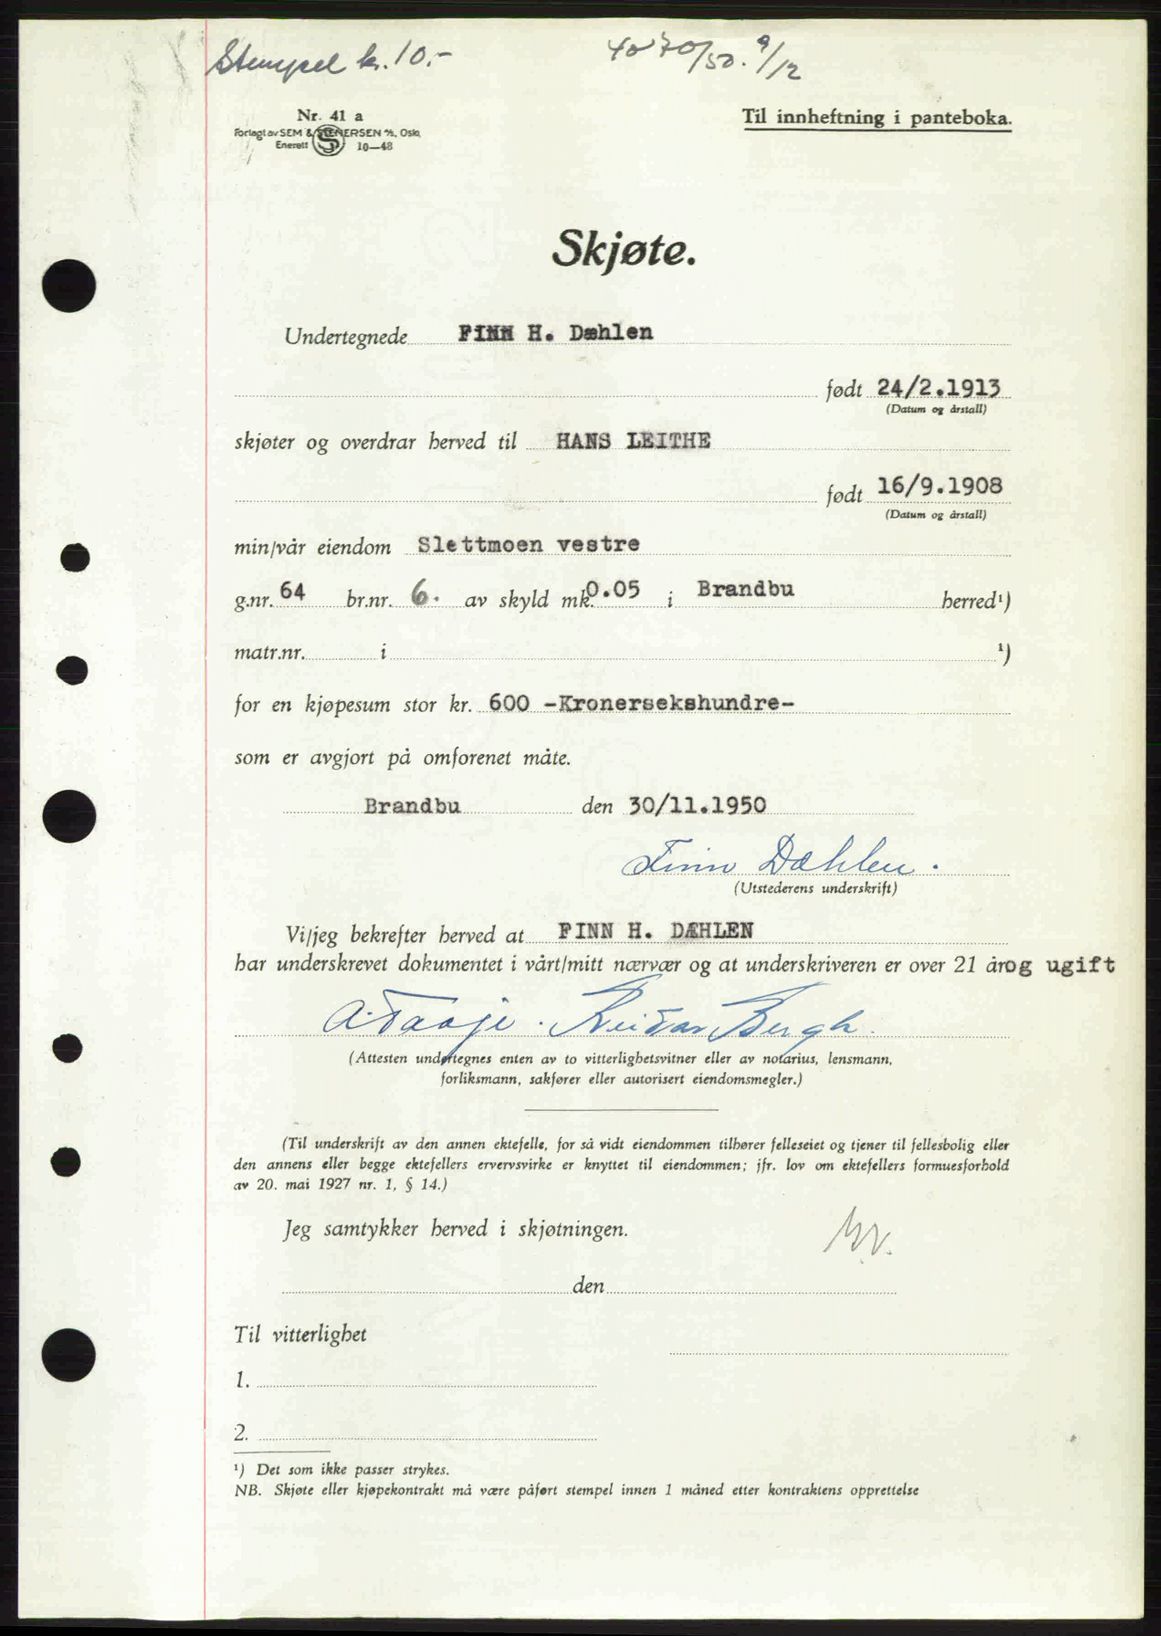 Stempel kr. 10.-
4070/50. 9/12
Nr. 41 a
Forlagt av SEM & STENERSEN A/S, Oslo,
Enerett 10—48
Til innheftning i panteboka.
Skjøte.
Undertegnede FINN H. Dæhlen
født 24/2.1913
(Datum og årstall)
skjøter og overdrar herved til HANS LEITHE
født 16/9.1908
(Datum og årstall)
min/vår eiendom Slettmoen vestre
g.nr. 64 br.nr. 6. av skyld mk. 0.05 i Brandbu herred¹)
matr.nr. i ¹)
for en kjøpesum stor kr. 600 -Kronersekshundre-
som er avgjort på omforenet måte.
Brandbu den 30/11.1950
Finn Dæhlen.
(Utstederens underskrift)
Vi/jeg bekrefter herved at FINN H. DÆHLEN
har underskrevet dokumentet i vårt/mitt nærvær og at underskriveren er over 21 år og ugift
A. Taaje. Reidar Bergh.
(Attesten undertegnes enten av to vitterlighetsvitner eller av notarius, lensmann,
forliksmann, sakfører eller autorisert eiendomsmegler.)
(Til underskrift av den annen ektefelle, for så vidt eiendommen tilhører felleseiet og tjener til fellesbolig eller
den annens eller begge ektefellers ervervsvirke er knyttet til eiendommen; jfr. lov om ektefellers formuesforhold
av 20. mai 1927 nr. 1, § 14.)
Jeg samtykker herved i skjøtningen.
den
Til vitterlighet
1.
2.
¹) Det som ikke passer strykes.
NB. Skjøte eller kjøpekontrakt må være påført stempel innen 1 måned etter kontraktens opprettelse